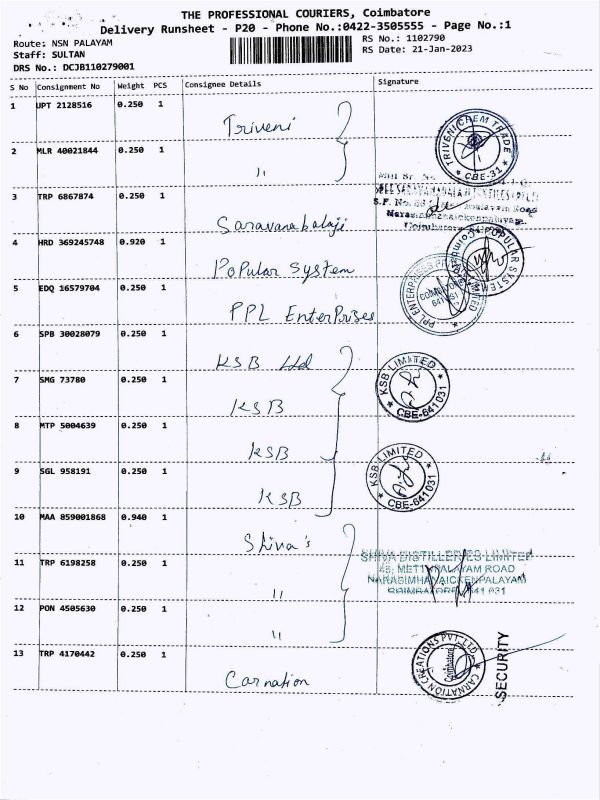 THE PROFESSIONAL COURIERS, Coimbatore
Delivery Runsheet - P20 - Phone No.:0422-3505555 - Page No.:1
Route: NSN PALAYAM
RS No.: 1102790
Staff: SULTAN
RS Date: 21-Jan-2023
DRS No.: DCJB110279001
S No Consignment No Weight PCS Consignee Details Signature
1 UPT 2128516 0.250 1
Triveni
TRIVENI CHEM TRADE
* CBE-31 *
2 MLR 40021844 0.250 1
"
3 TRP 6867874 0.250 1
Saravanabalaji
Narasimhanaickenpalayam,
4 HRD 369245748 0.920 1
Popular System
POPULAR SYSTEM
5 EDQ 16579704 0.250 1
PPL EnterPrises
PPL ENTERPRISES
6 SPB 30028079 0.250 1
KSB Ltd
KSB LIMITED
* CBE-641 031 *
7 SMG 73780 0.250 1
KSB
8 MTP 5004639 0.250 1
KSB
KSB LIMITED
* CBE-641 031 *
9 SGL 958191 0.250 1
KSB
10 MAA 859001868 0.940 1
Shiva's
SHIVA DISTILLERIES LIMITED
METTUPALAYAM ROAD
NARASIMHANAICKENPALAYAM
COIMBATORE 641 031
11 TRP 6198258 0.250 1
"
12 PON 4505630 0.250 1
"
13 TRP 4170442 0.250 1
Carnation
CARNATION CREATIONS PVT LTD
Coimbatore
SECURITY